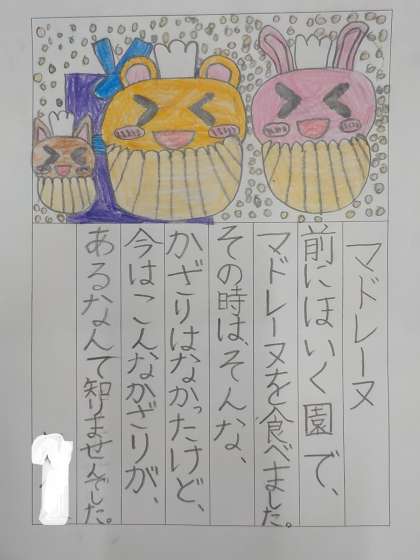 マドレーヌ
前にほいく園で、
マドレーヌを食べました。
その時は、そんな、
かざりはなかったけど、
今はこんなかざりが、
あるなんて知りませんでした。